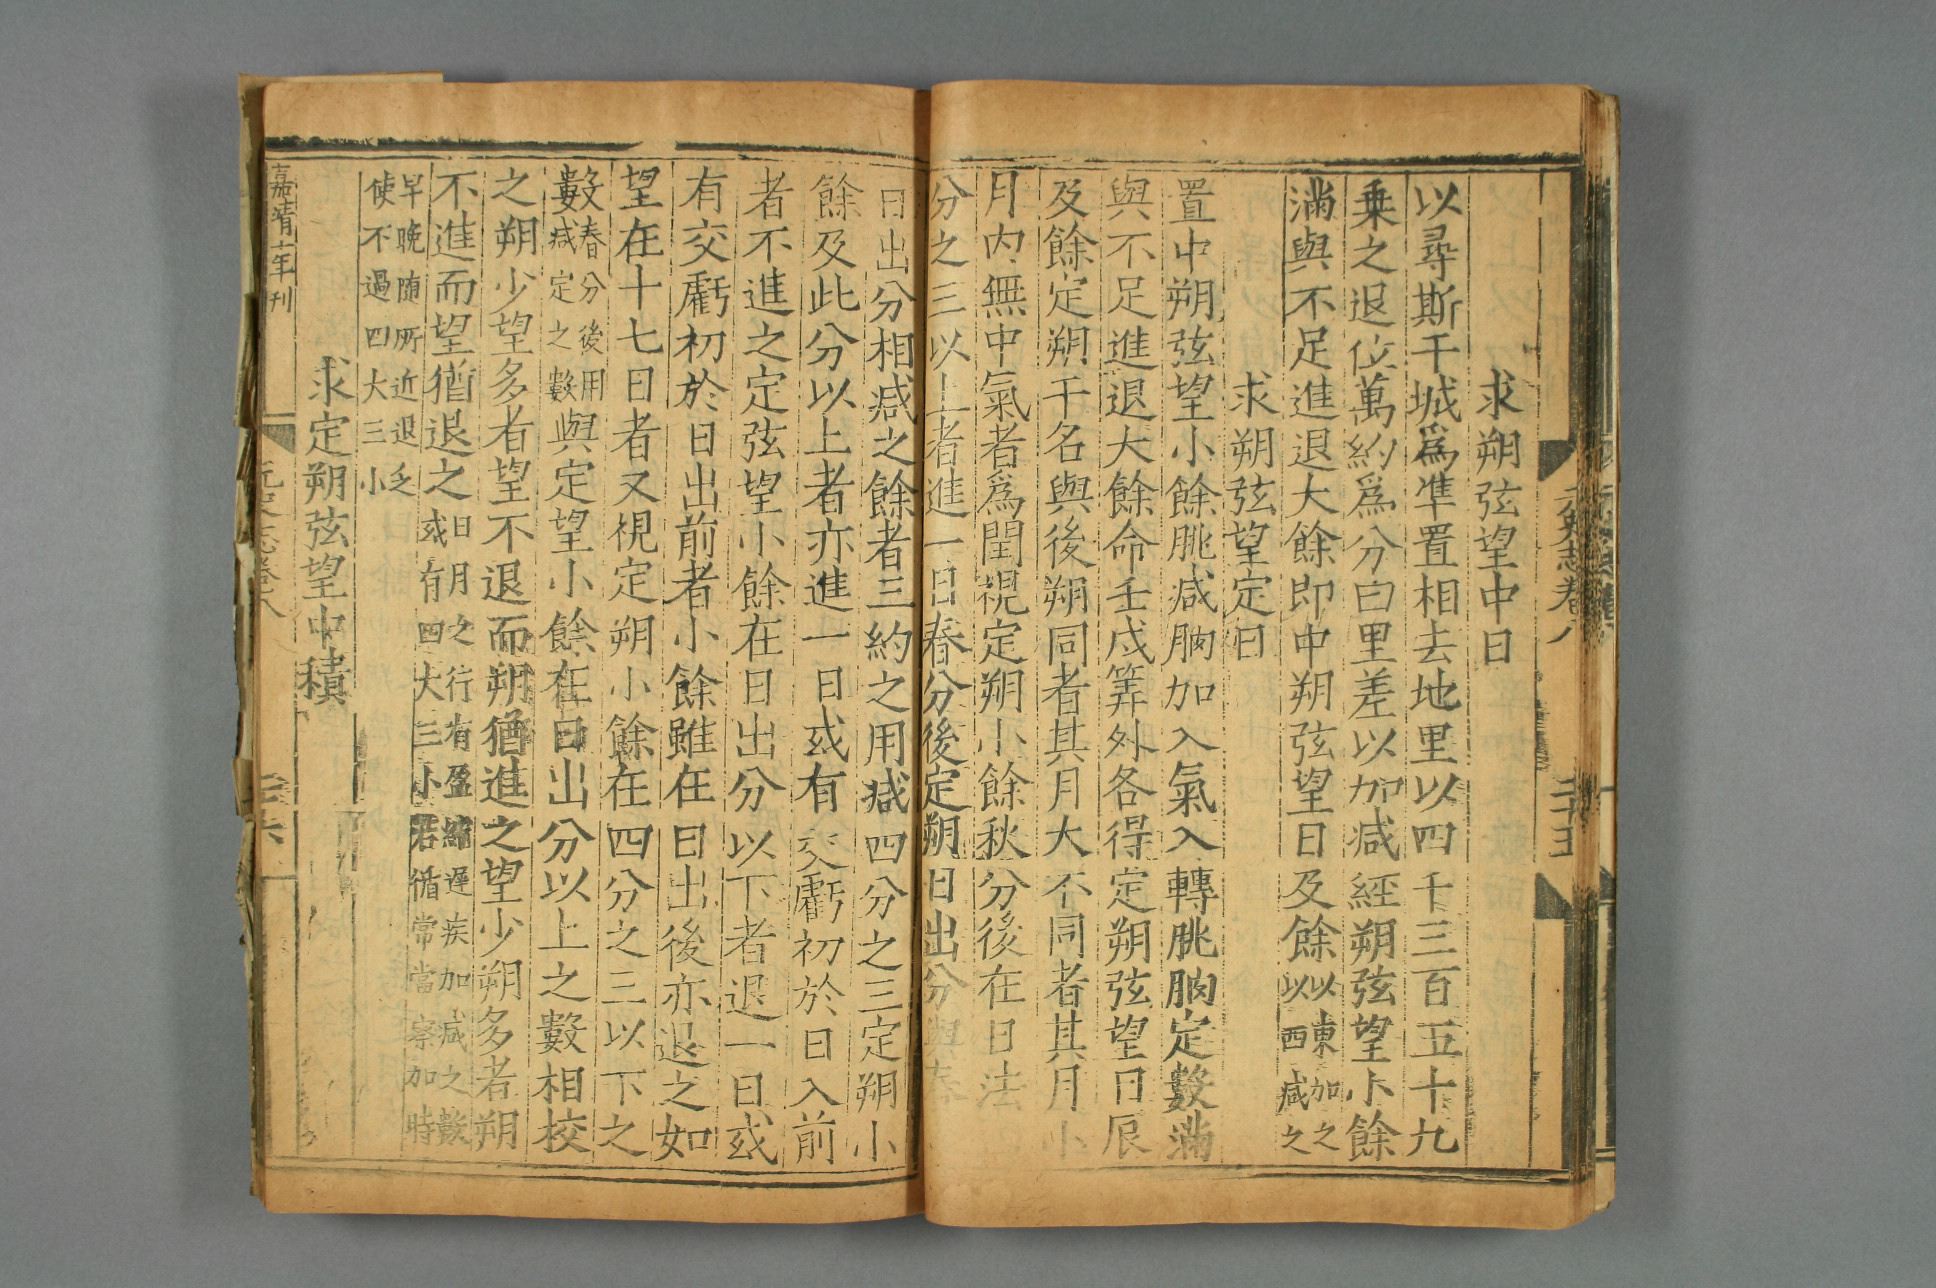 元史志卷八
二十五
求朔弦望中日
以尋斯干城爲準置相去地里以四千三百五十九
乗之退位萬約爲分曰里差以加减經朔弦望小餘
滿與不足進退大餘即中朔弦望日及餘以東加之以西减之
求朔弦望定日
置中朔弦望小餘朓减朒加入氣入轉朓朒定數滿
與不足進退大餘命壬戌筭外各得定朔弦望日辰
及餘定朔干名與後朔同者其月大不同者其月小
月内無中氣者爲閏視定朔小餘秋分後在日法
分之三以上者進一日春分後定朔日出分與春
日出分相减之餘者三約之用减四分之三定朔小
餘及此分以上者亦進一日或有交虧初於日入前
者不進之定弦望小餘在日出分以下者退一日或
有交虧初於日出前者小餘雖在日出後亦退之如
望在十七日者又視定朔小餘在四分之三以下之
數春分後用减定之數與定望小餘在日出分以上之數相校
之朔少望多者望不退而朔猶進之望少朔多者朔
不進而望猶退之日月之行有盈縮遲疾加减之數或有四大三小若循常當察加時
早晚随所近退之使不過四大三小
求定朔弦望中積
嘉靖十年刊
元史志卷八
二十六